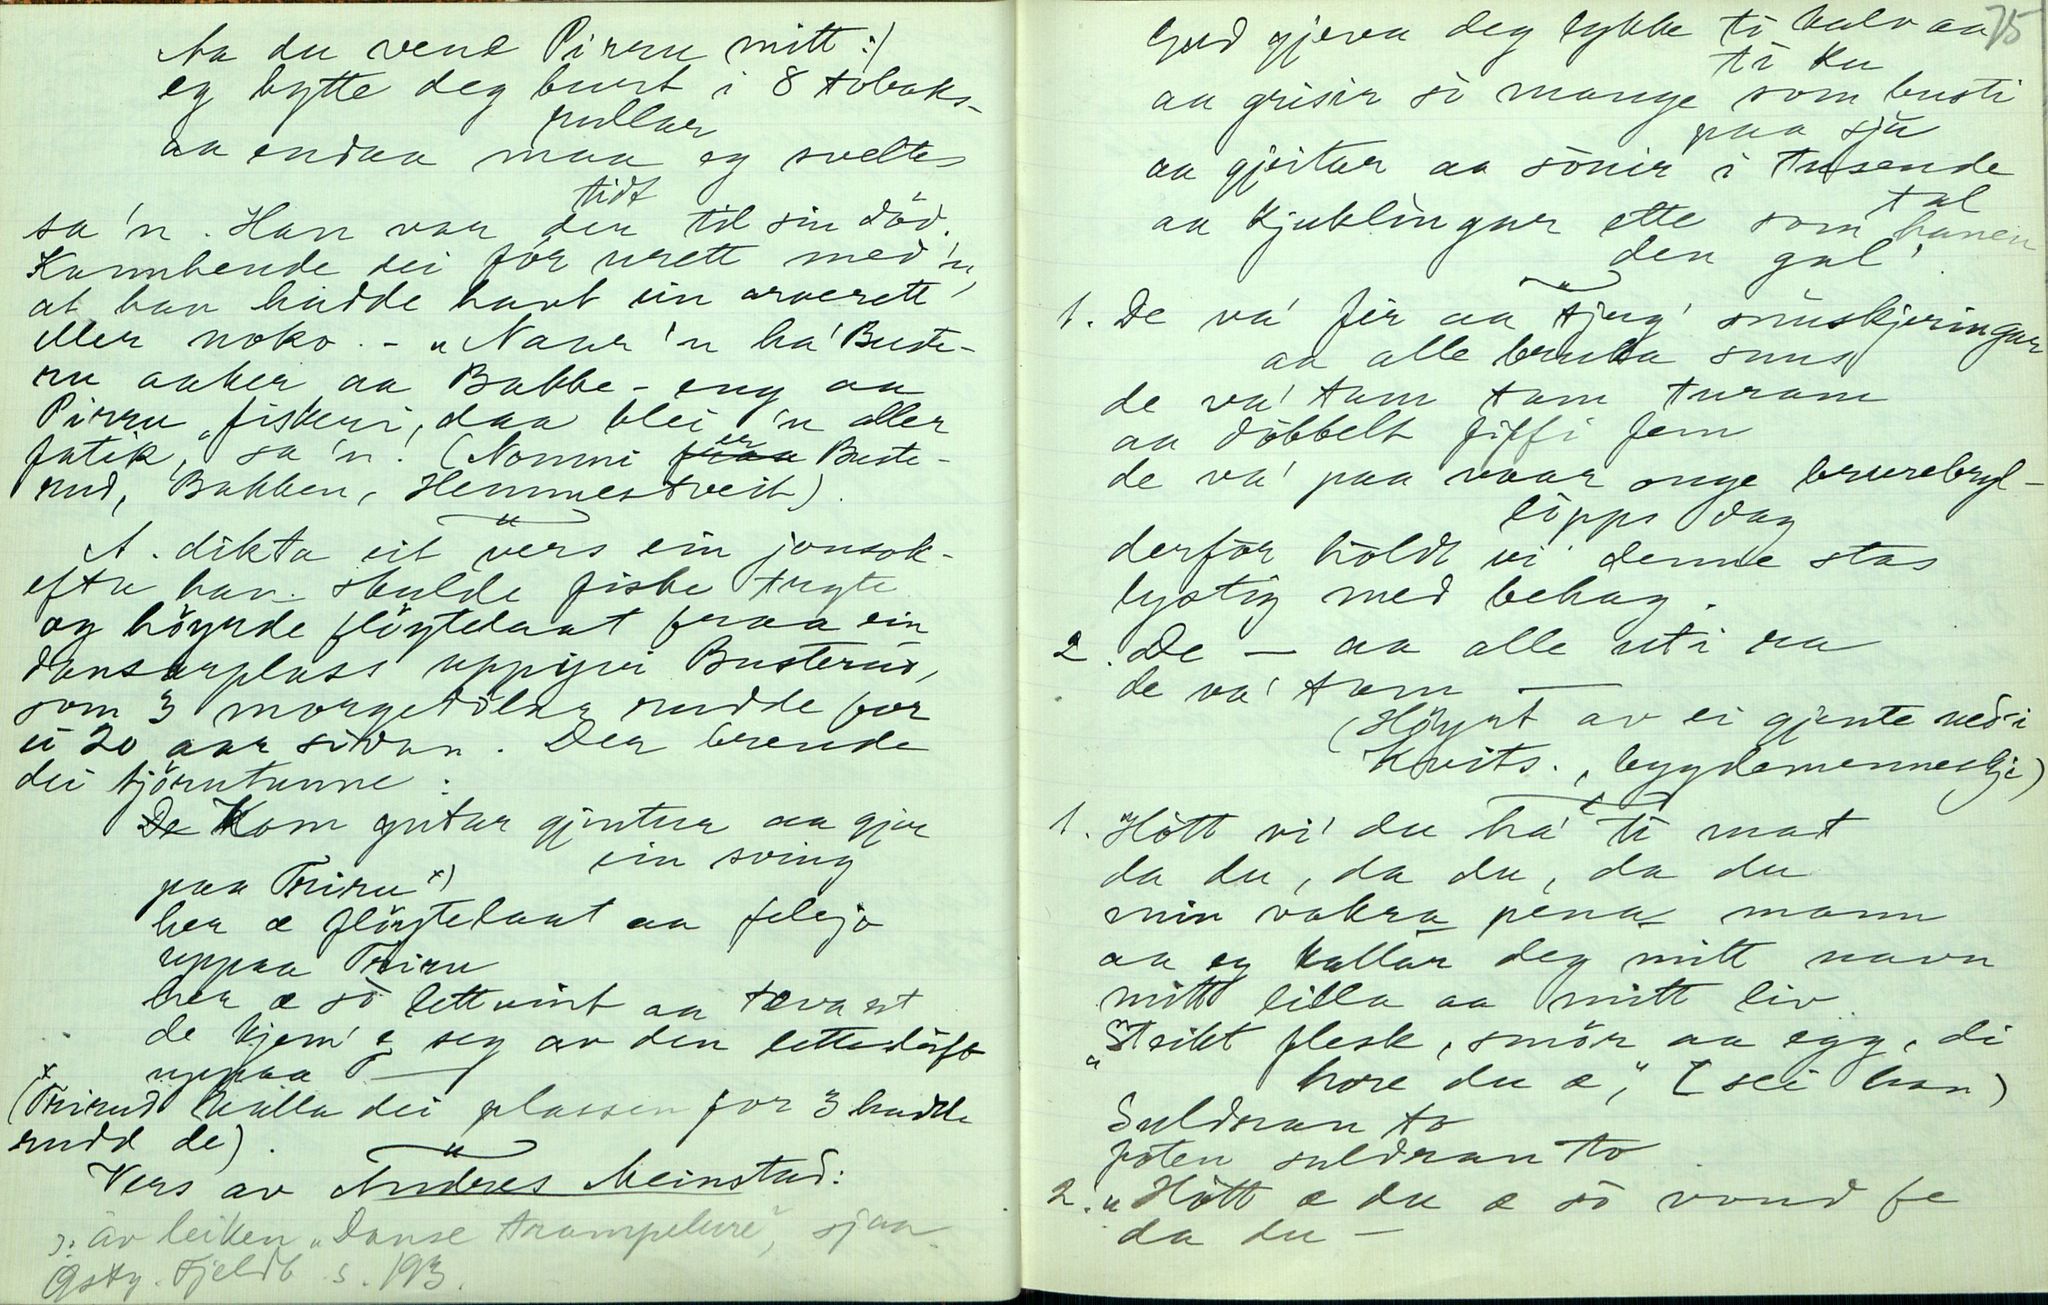 Aa du vene Pirru mitt :/
eg bytte deg burt i 8 tobaks-
rullar
aa endaa maa eg svelte
sa'n. Han var der tidt til sin död.
Kannhende dei för urett med'n,
at han hadde havt ein arverett
eller noko. - "Naar'n ha' Buste-
ru aaker aa Bakke-eng aa
Pirru fiskeri, daa blei'n aller
fatik", sa'n. (Nomni er Buste-
rud, Bakken, Hemmestveit).
A. dikta eit vers ein jonsok-
efta han skulde fiske trygte
og höyrde flöytelaat fraa ein
dansarplass uppiyvi Busterud,
som 3 morgedölar rudde for
ei 20 aar sidan. Der brende
dei tjörutunne:
Kom gutar gjentur aa gjer
ein sving
paa Triru x)
her æ flöytelaat aa felejo
uppaa Triru
her æ so lettvint aa træva ut
de kjem' seg av den lette luft
uppaa T—
x
(Trirud kalla dei plassen for 3 hadde
rudd de).
Vers av Andres Meinstad:
ɔ: av leiken "Danse trampelure", sjaa
Østby. Fjeldb s. 193.
75
Gud gjeva deg lykke ti kalv aa
ti ku
aa grisir so mange som busti
paa sju
aa gjeitar aa sönir i tusende
tal
aa kjuklingar ette som hanen
den gal'.
1. De va' fir aa tjug' snuskjeringar
aa alle bruka snus
de va' tam tam turam
aa döbbelt fiffi fem
de va' paa vaar unge brurebryl-
löpps dag
derfor holdt vi denne stas
lystig med behag.
2. De — aa alle uti ra
de va' tam —
(Höyrt av ei gjente ned i
Kvits., bygdemenneskje)
1. "Hött vi' du ha' ti mat
da du, da du, da du
min vakra pena mann
aa eg kallar deg mitt navn
mitt lilla aa mitt liv
"Steikt flesk, smör aa egg, di
hore du æ", (sei han)
Suldran to
foten suldran to
2. "Hött æ du æ so vond fe
da du —